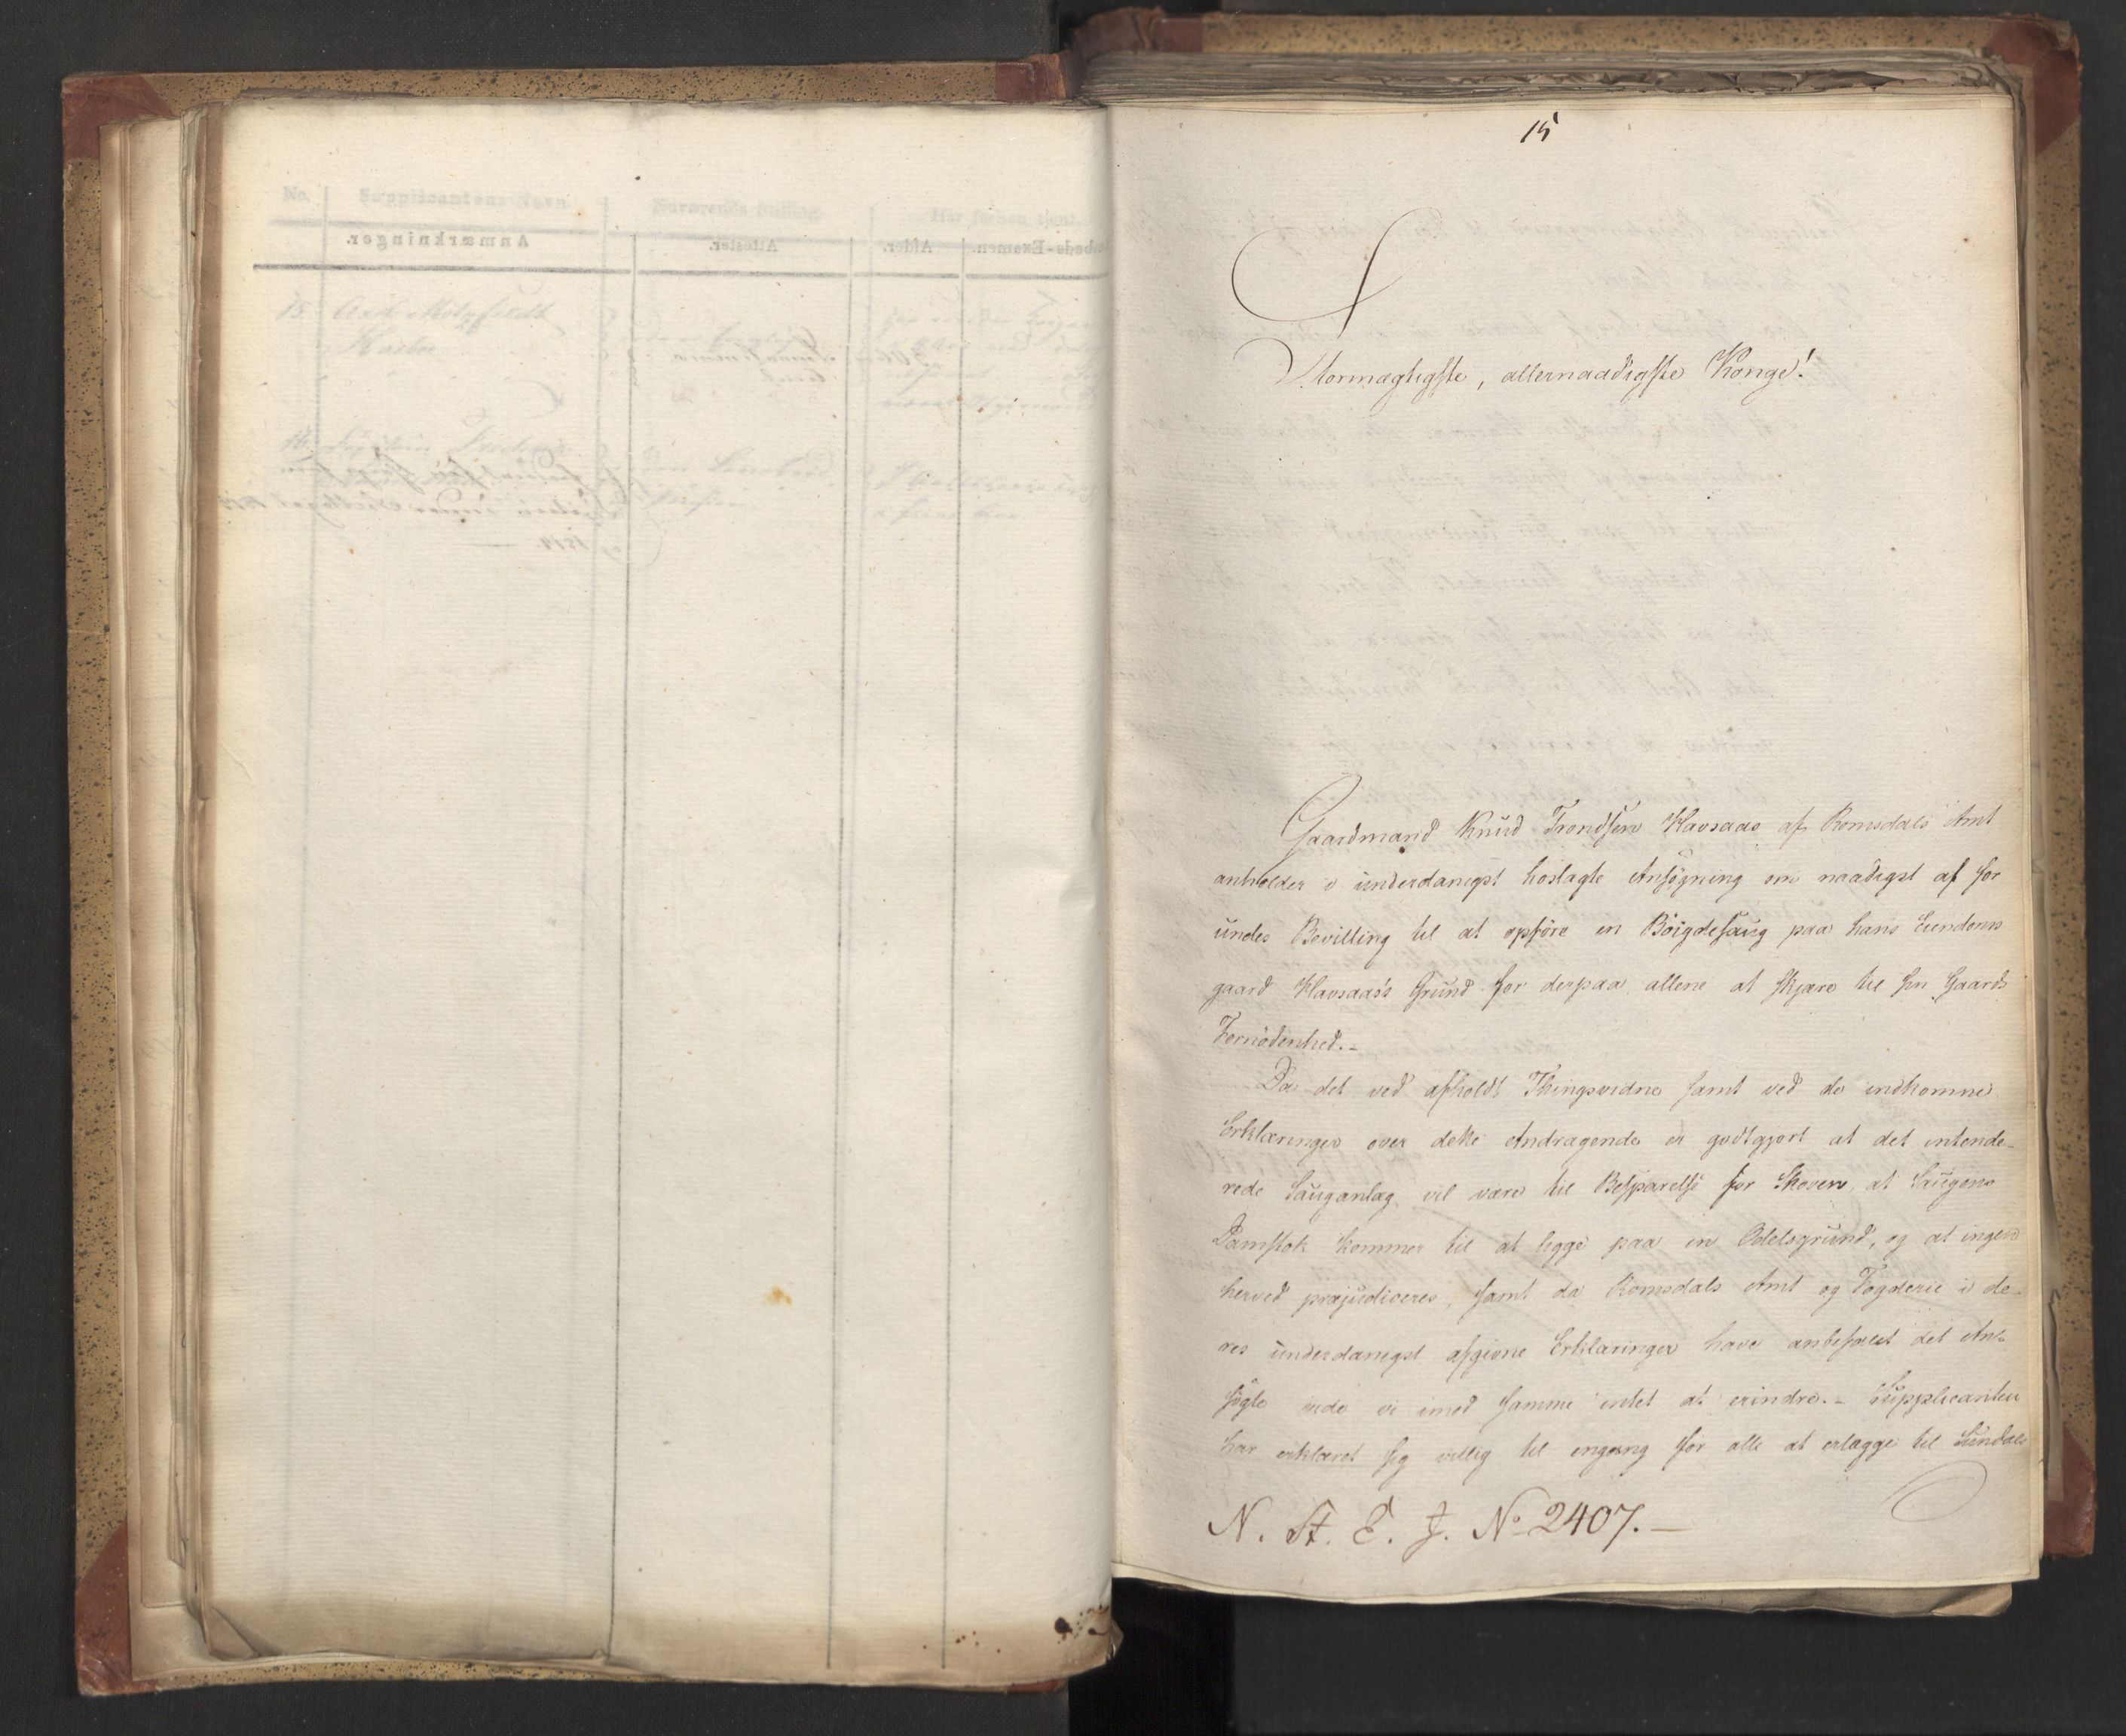 15
Stormægtigste, allernaadigste Konge!
Gaardmand Knud Trondsen Havsaas af Romsdals Amt
anholder i underdanigst hoslagte Ansøgning om naadigst at for
undes Bevilling til at opføre en Böigdesaug paa hans Eiendoms
gaard Havsaas's Grund for derpaa allene at skjære til sin Gaards
Fornödenhed.-
Da det ved afholdt Thingsvidne samt ved de indkomne
Erklæringer over dette Andragende er godtgjort at det intende-
rede Sauganlæg vil være til Besparelse for Skoven, at Saugens
Damstok kommer til at ligge paa en Odelsgrund, og at ingen
herved præjudiceres, samt da Romsdals Amt og Fogderie i de-
res underdanigst afgivne Erklæringer have anbefalet det An-
søgte vide vi imod samme intet at erindre.- Supplicanten
har erklæret sig villig til engang for alle at erlægge til Sundals
N. St. E. J. No 2407.-